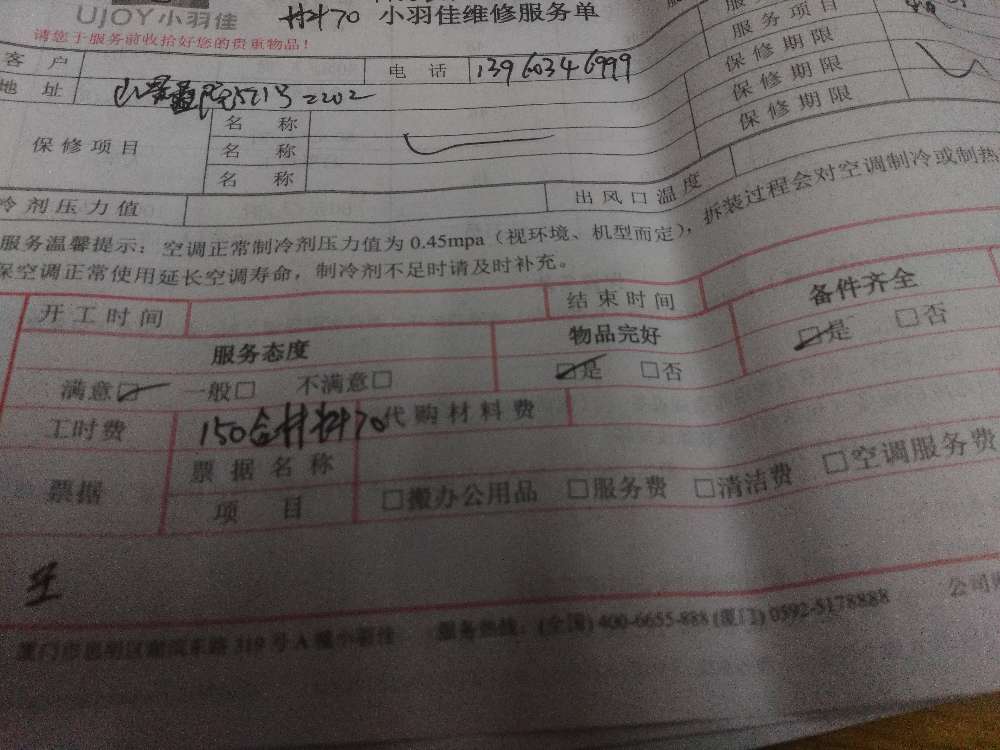 UJOY小羽佳 材料70 小羽佳维修服务单
请您于服务前收拾好您的贵重物品！
客 户 电 话 13960346999
服务项目
保修期限
地 址 521号 2202
保修期限
保修期限
保修项目
名 称
名 称
名 称
冷剂压力值 出风口温度
服务温馨提示：空调正常制冷剂压力值为 0.45mpa（视环境、机型而定），拆装过程会对空调制冷或制热
保空调正常使用延长空调寿命，制冷剂不足时请及时补充。
开工时间 结束时间
服务态度 物品完好 备件齐全
满意☑ 一般□ 不满意□ ☑是 □否 ☑是 □否
工时费 150含材料70 代购材料费
票据 票据名称
项 目 □搬办公用品 □服务费 □清洁费 □空调服务费
服务热线：(全国) 400-6655-888 (厦门) 0592-5178888 公司